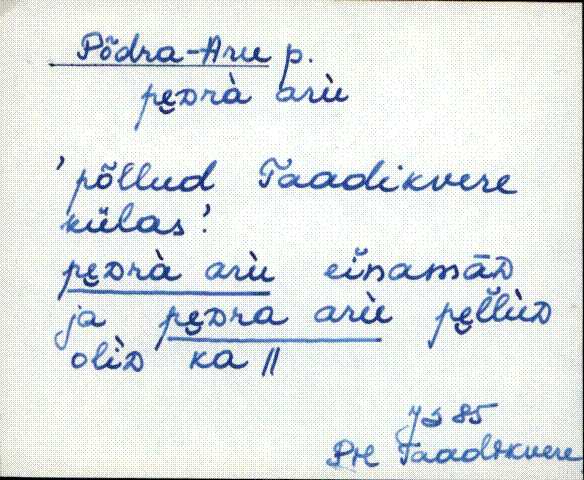 Põdra-Aru p.
pe̮ᴅrà arù
'põllud Taadikvere
külas'.
pe̮ᴅrà arù eĭnamāᴅ
ja pe̮ᴅra arù pe̮l̆lùᴅ
olìᴅ ka ||
85
PM Taadikvere